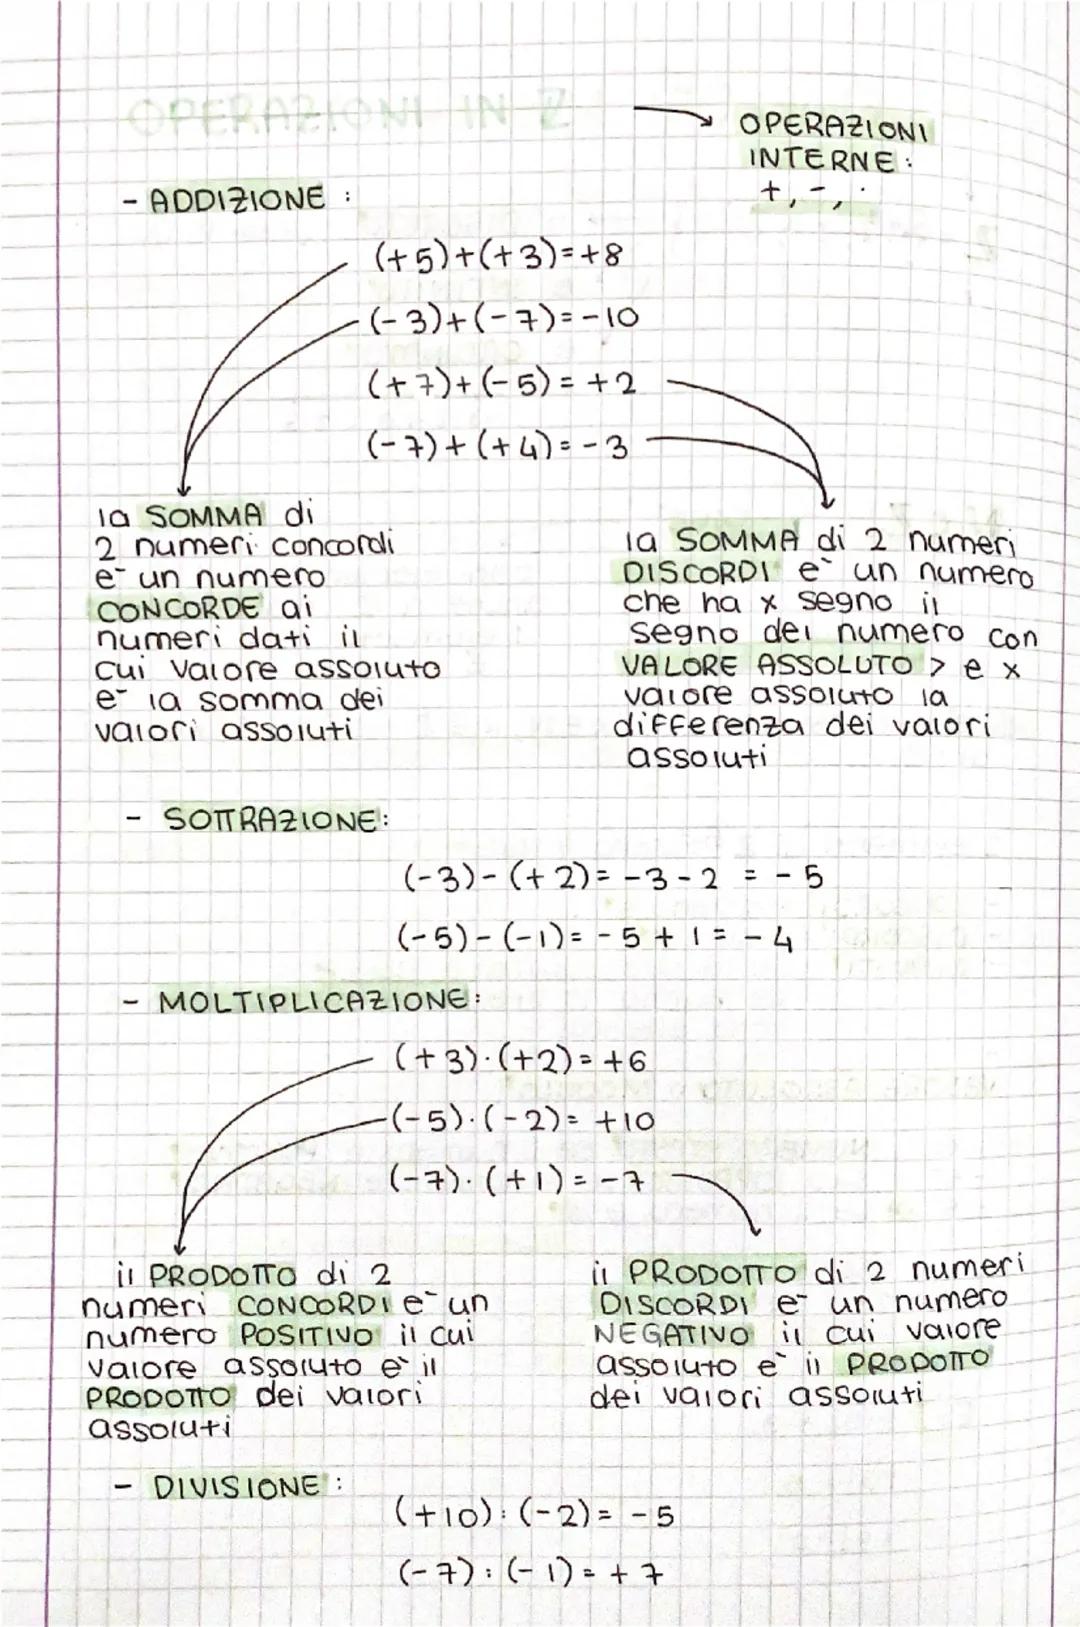 OPERAZIONI IN Z
OPERAZIONI
INTERNE:
+, -, ·
- ADDIZIONE :
(+5)+(+3)=+8
(-3)+(-7)=-10
(+7)+(-5)=+2
(-7)+(+4)=-3
la SOMMA di
2 numeri concordi
è un numero
CONCORDE ai
numeri dati il
cui valore assoluto
è la somma dei
valori assoluti
la SOMMA di 2 numeri
DISCORDI è un numero
che ha x segno il
segno del numero con
VALORE ASSOLUTO > e x
valore assoluto la
differenza dei valori
assoluti
- SOTTRAZIONE:
(-3)-(+2)=-3-2 = -5
(-5)-(-1)=-5+1=-4
- MOLTIPLICAZIONE:
(+3)·(+2)=+6
(-5)·(-2)=+10
(-7)·(+1)=-7
il PRODOTTO di 2
numeri CONCORDI è un
numero POSITIVO il cui
valore assoluto è il
PRODOTTO dei valori
assoluti
il PRODOTTO di 2 numeri
DISCORDI è un numero
NEGATIVO il cui valore
assoluto è il PRODOTTO
dei valori assoluti
- DIVISIONE :
(+10):(-2)=-5
(-7):(-1)=+7